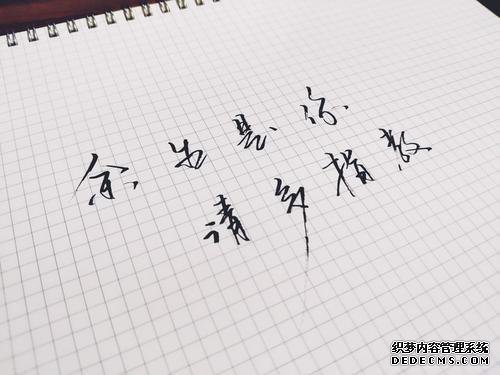 余生是你
请多指教
织梦内容管理系统
DEDECMS.COM